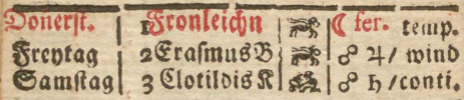 Donerst. 1 Fronleichn ☾ fer. temp.
Freytag 2 Erasmus B ☍ ♃ / wind
Samstag 3 Clotildis K ☍ ♄ / conti.